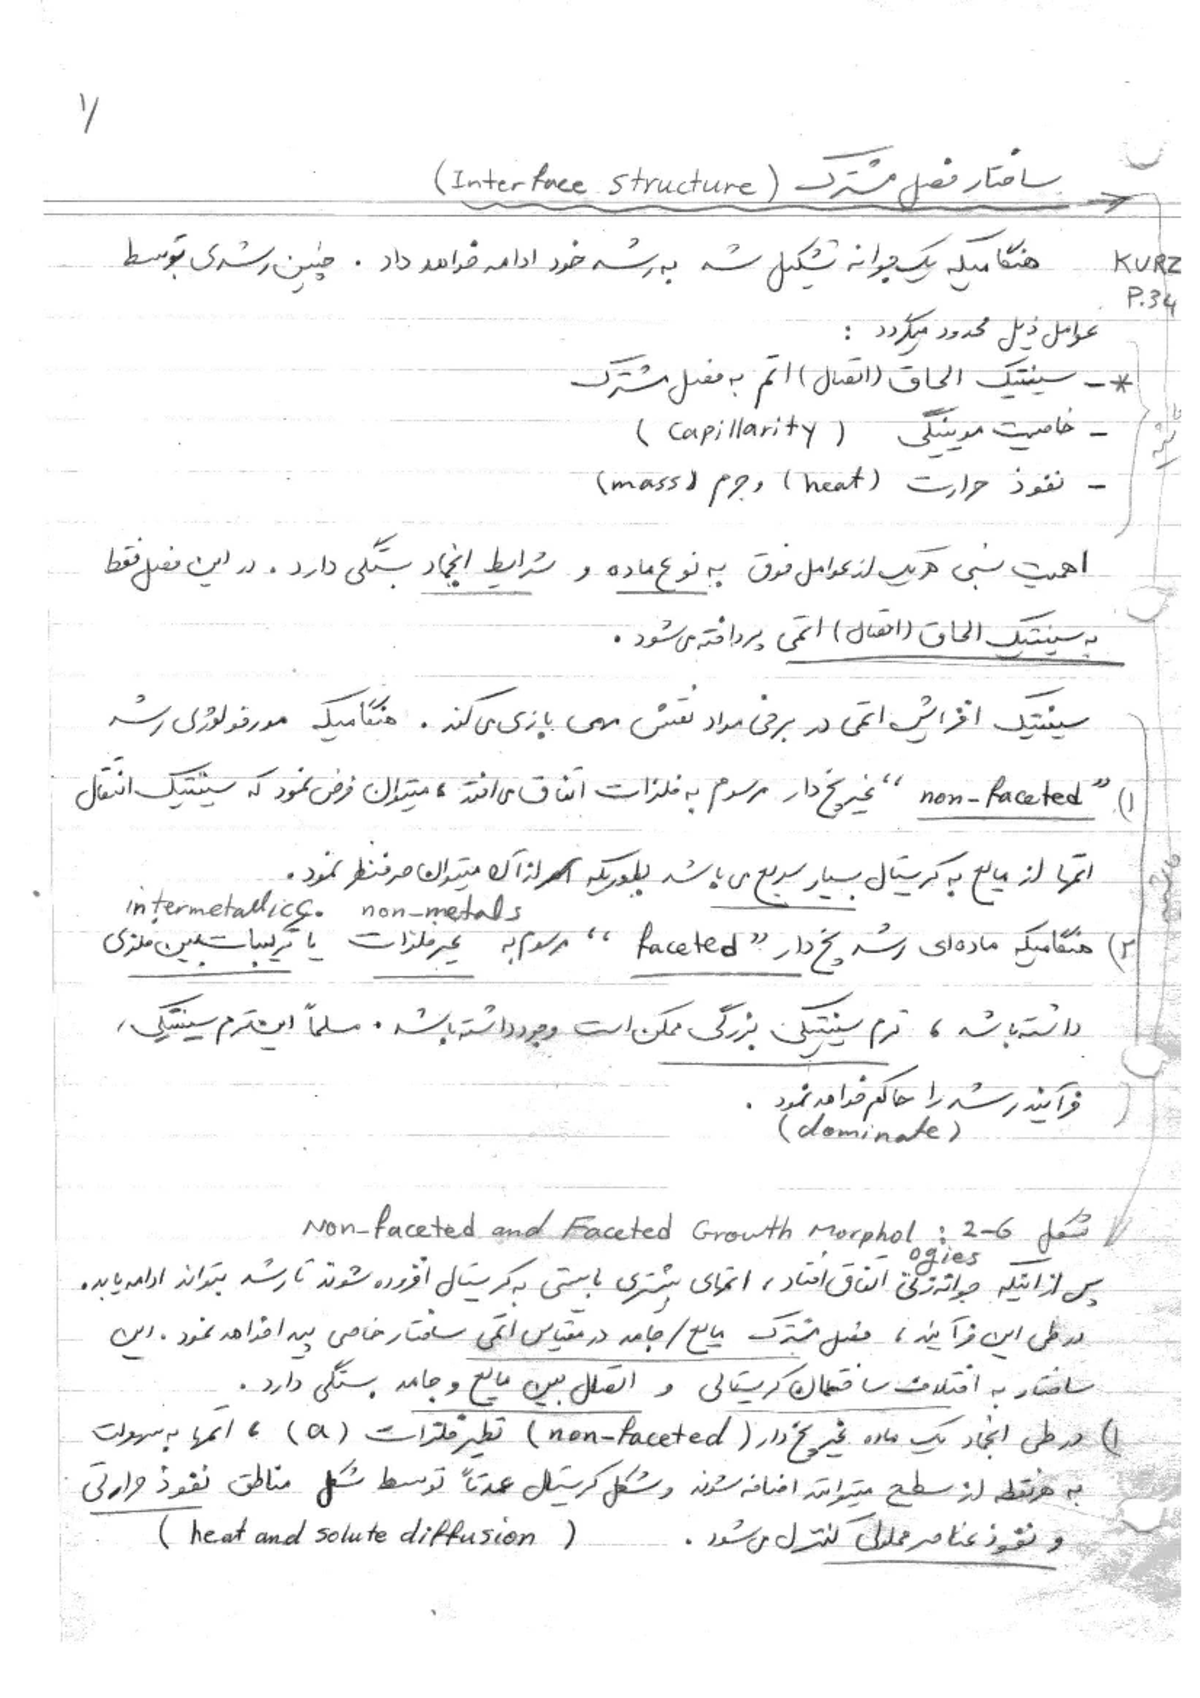 ۱/
ساختار فصل مشترک (Interface structure)
KURZ
P.34
هنگامیکه یک جوانه تشکیل شد به رشد خود ادامه خواهد داد . چنین رشدی توسط
عوامل ذیل محدود میگردد :
*– سینتیک الحاق (اتصال) اتم به فصل مشترک
– خاصیت موینگی (capillarity)
– نفوذ حرارت (heat) و جرم (mass)
اهمیت نسبی هریک از عوامل فوق به نوع ماده و شرایط انجماد بستگی دارد . در این فصل فقط
به سینتیک الحاق (اتصال) اتمی پرداخته می‌شود .
سینتیک افزایش اتمی در برخی مواد نقش مهمی بازی می‌کند . هنگامیکه مورفولوژی رشد
۱) "non-faceted" غیر پخ‌دار مرسوم به فلزات اتفاق می‌افتد ، میتوان فرض نمود که سینتیک انتقال
اتمها از مایع به کریستال بسیار سریع می باشد بطوریکه از آن میتوان صرفنظر نمود .
intermetallics. non-metals
۲) هنگامیکه ماده‌ای رشد پخ دار "faceted" مرسوم به غیر فلزات یا ترکیبات بین فلزی
داشته باشد ، ترم سینتیکی بزرگی ممکن است وجود داشته باشد . مسلماً این ترم سینتیکی،
فرآیند رشد را حاکم خواهد نمود .
(dominate)
شکل 2-6 : Non-faceted and Faceted Growth Morphol
ogies
پس از اینکه جوانه زنی اتفاق افتاد ، اتمهای بیشتری بایستی به کریستال افزوده شوند تا رشد بتواند ادامه یابد.
در طی این فرآیند ، فصل مشترک مایع/جامد در مقیاس اتمی ساختار خاصی پیدا خواهد نمود . این
ساختار به اختلاف ساختمان کریستالی و اتصال بین مایع و جامد بستگی دارد .
۱) در طی انجماد یک ماده غیر پخ دار (non-faceted) نظیر فلزات (a) ، اتمها به سهولت
به هر نقطه از سطح میتوانند اضافه شوند و شکل کریستال عمدتاً توسط شکل مناطق نفوذ حرارتی
و نفوذ عناصر محلولی کنترل می شود . (heat and solute diffusion)